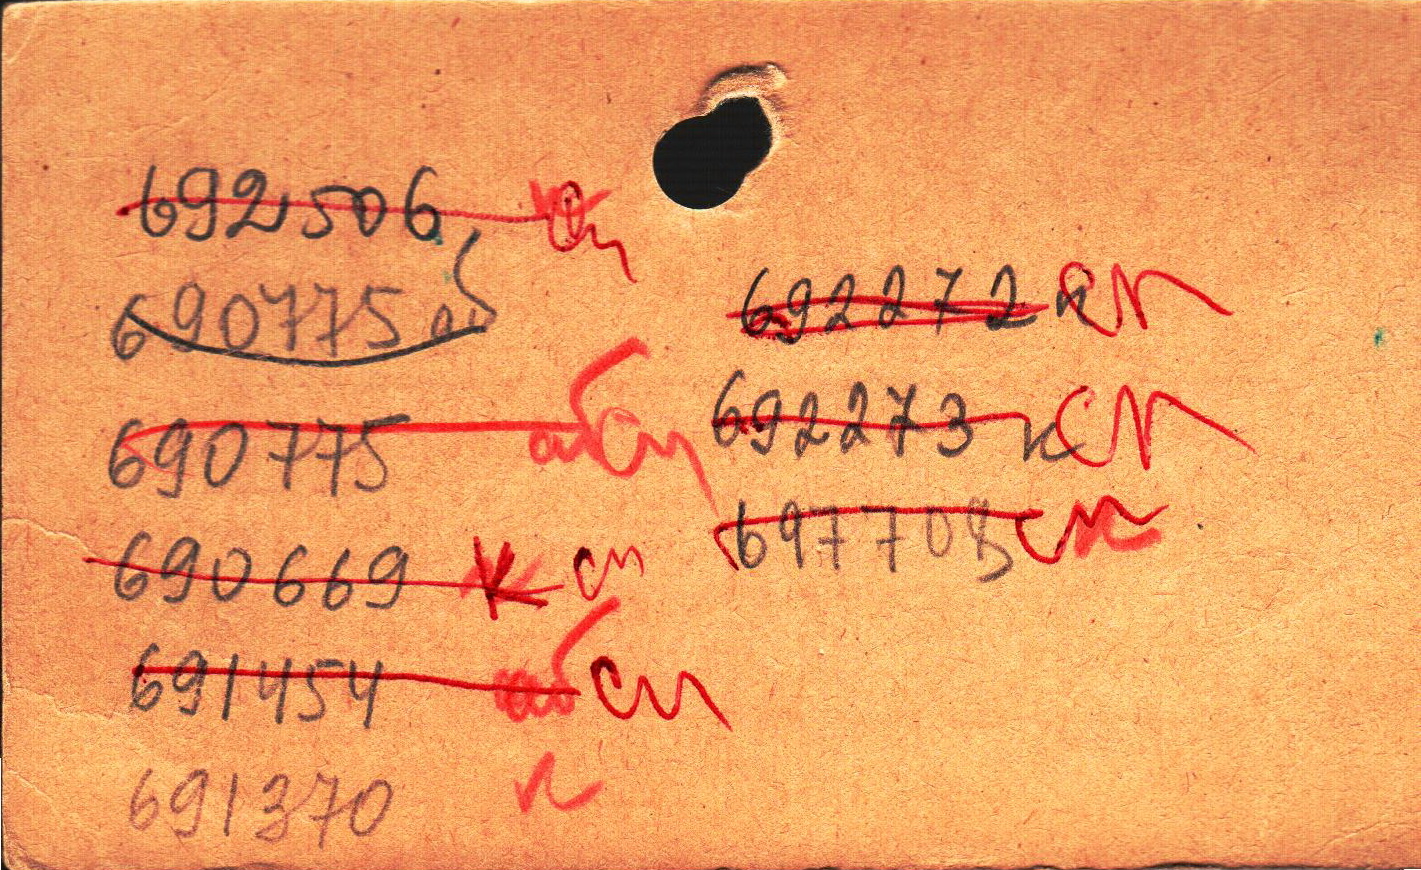 692506 см
690775 аб
690775 аб см
690669 к см
691454 аб см
691370 к
692272 к см
692273 к см
697708 см